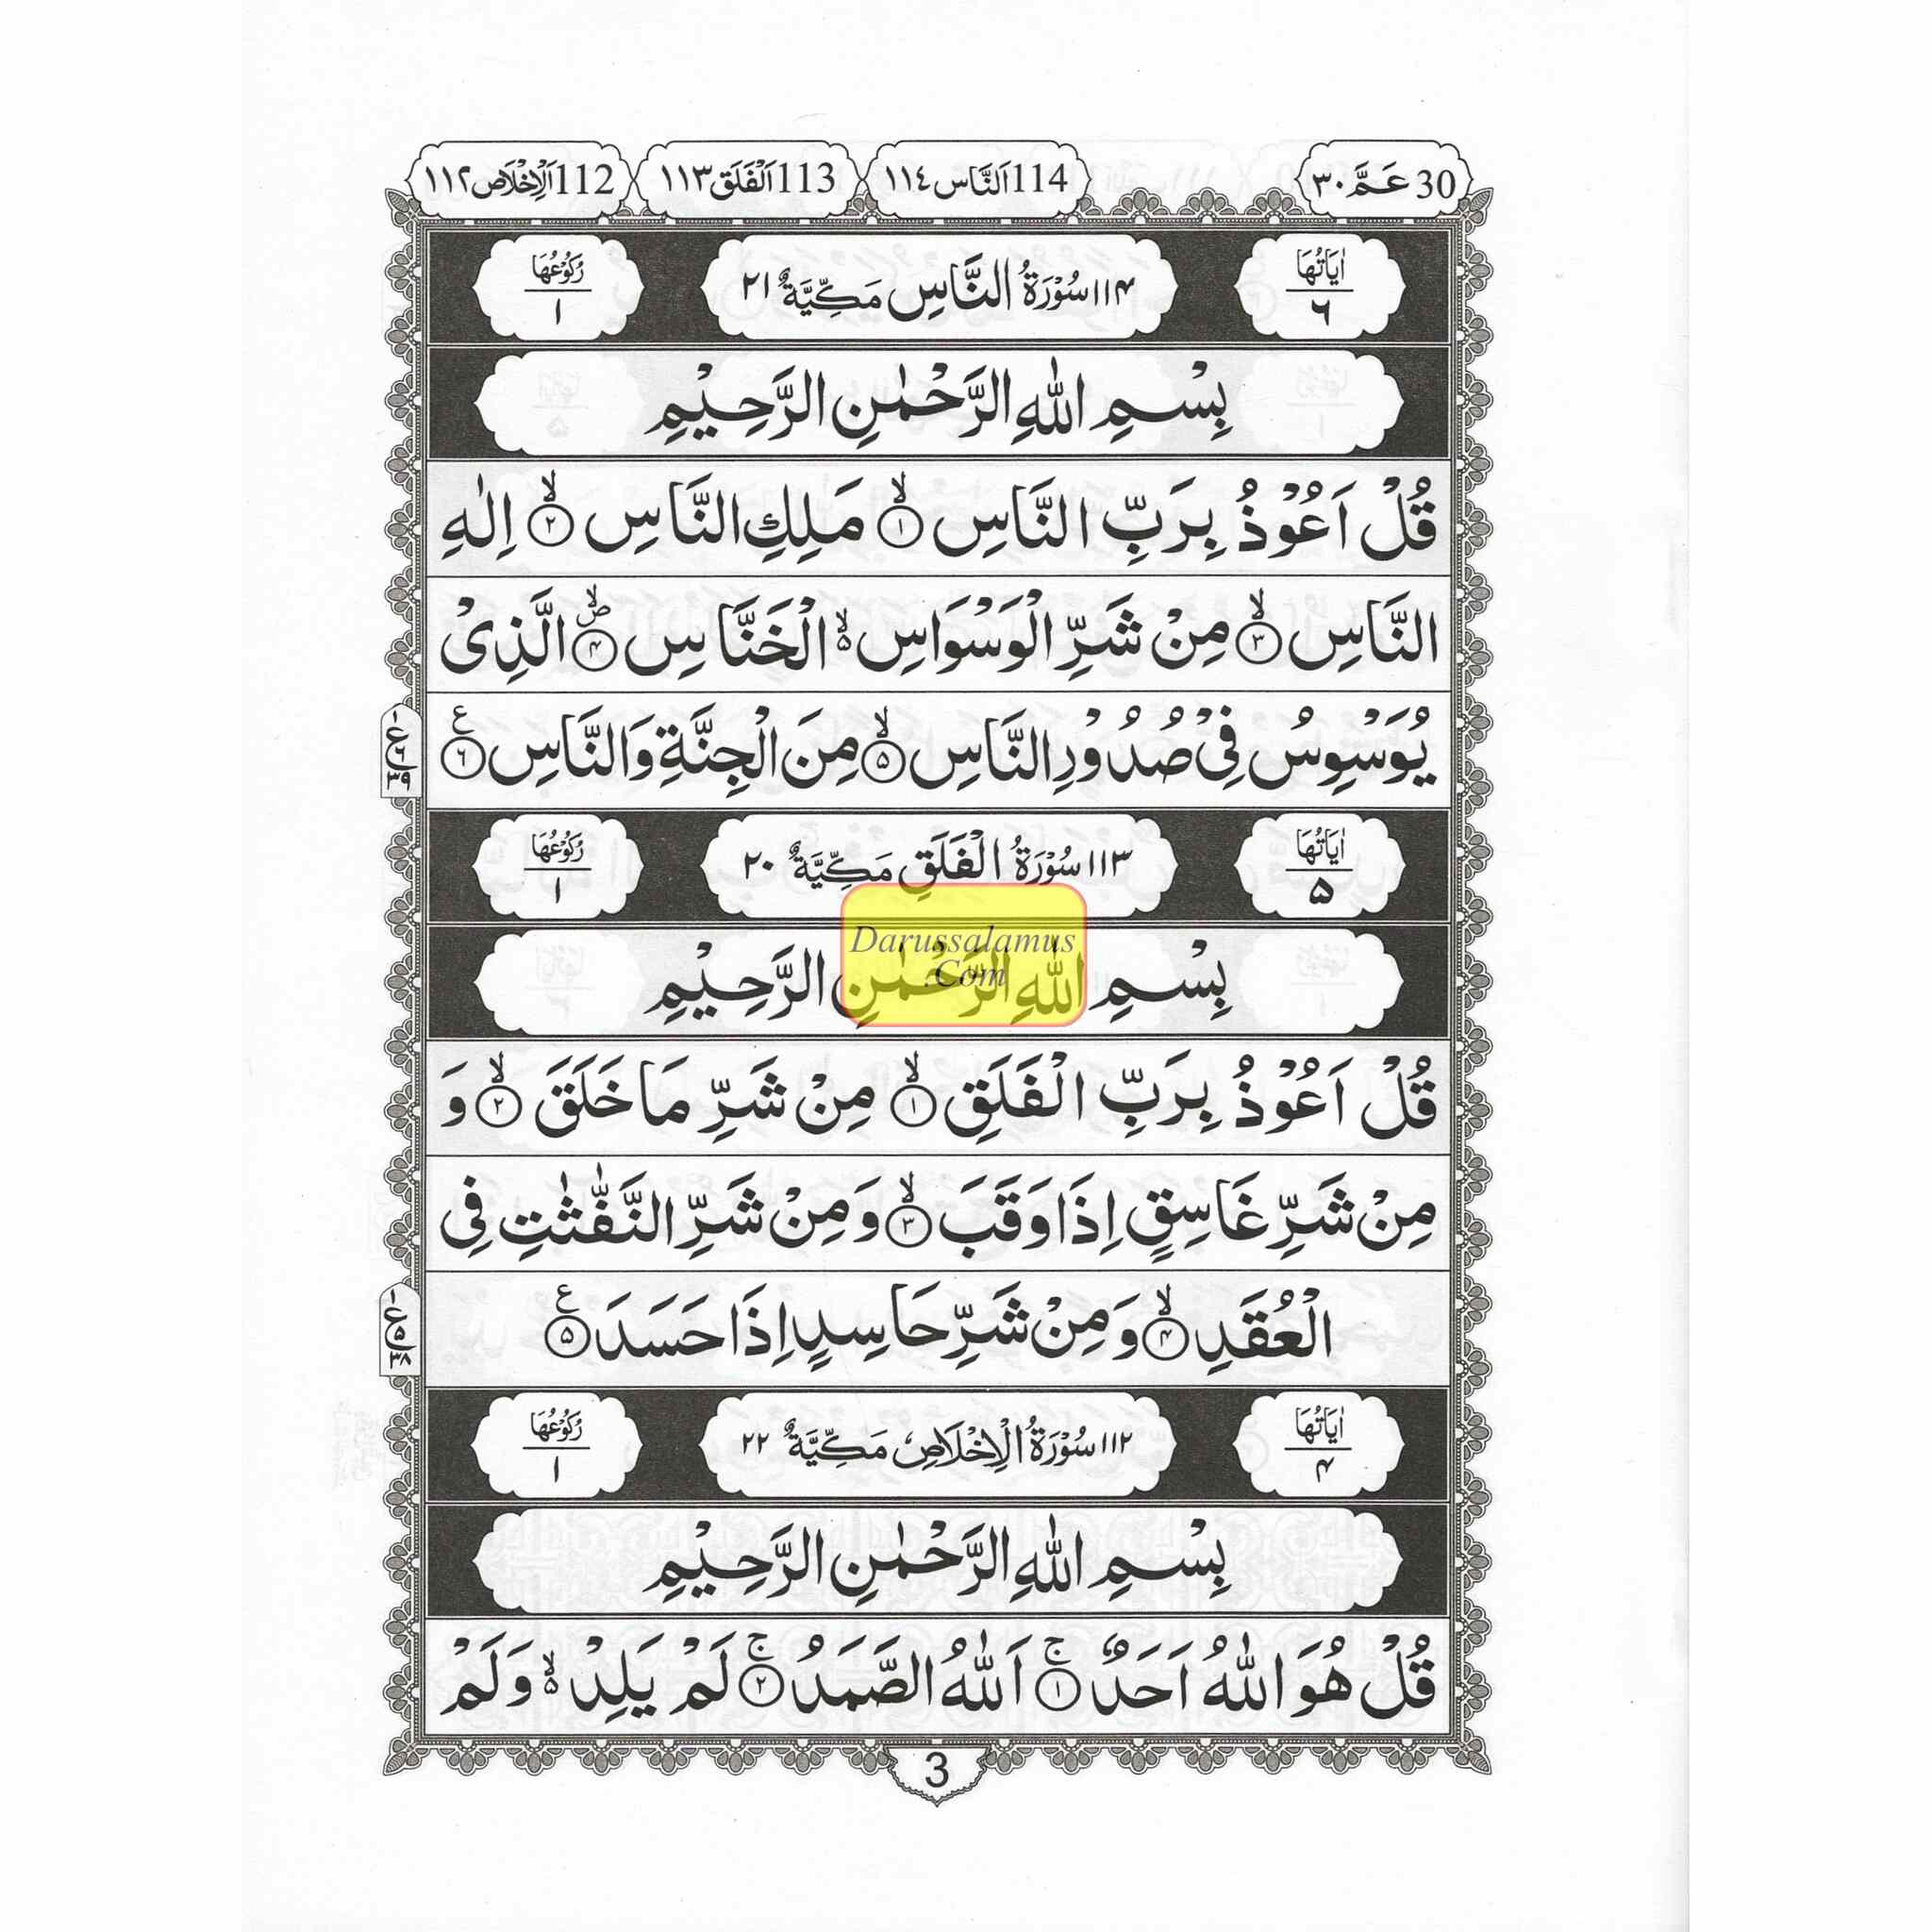 30 عَمَّ ٣٠ 114 اَلنَّاس ١١٤ 113 اَلْفَلَق ١١٣ 112 اَلْاِخْلَاص ١١٢
اٰيَاتُهَا ٦ ١١۴ سُوْرَةُ النَّاسِ مَكِّيَّةٌ ٢١ رُكُوْعُهَا ١
بِسْمِ اللّٰهِ الرَّحْمٰنِ الرَّحِيْمِ
قُلْ اَعُوْذُ بِرَبِّ النَّاسِ ۙ‏ ١ مَلِكِ النَّاسِ ۙ‏ ٢ اِلٰهِ
النَّاسِ ۙ‏ ٣ مِنْ شَرِّ الْوَسْوَاسِ ۙ۬ الْخَنَّاسِ ۪ۙ‏ ۴ الَّذِىْ
يُوَسْوِسُ فِىْ صُدُوْرِ النَّاسِ ۙ‏ ۵ مِنَ الْجِنَّةِ وَالنَّاسِ ع ٦
ع ٦ ٣٩
اٰيَاتُهَا ۵ ١١٣ سُوْرَةُ الْفَلَقِ مَكِّيَّةٌ ٢٠ رُكُوْعُهَا ١
Darussalamus
.Com
بِسْمِ اللّٰهِ الرَّحْمٰنِ الرَّحِيْمِ
قُلْ اَعُوْذُ بِرَبِّ الْفَلَقِ ۙ‏ ١ مِنْ شَرِّ مَا خَلَقَ ۙ‏ ٢ وَ
مِنْ شَرِّ غَاسِقٍ اِذَا وَقَبَ ۙ‏ ٣ وَمِنْ شَرِّ النَّفّٰثٰتِ فِى
الْعُقَدِ ۙ‏ ۴ وَمِنْ شَرِّ حَاسِدٍ اِذَا حَسَدَ ع ۵
ع ۵ ٣٨
اٰيَاتُهَا ۴ ١١٢ سُوْرَةُ الْاِخْلَاصِ مَكِّيَّةٌ ٢٢ رُكُوْعُهَا ١
بِسْمِ اللّٰهِ الرَّحْمٰنِ الرَّحِيْمِ
قُلْ هُوَ اللّٰهُ اَحَدٌ ۚ‏ ١ اَللّٰهُ الصَّمَدُ ۚ‏ ٢ لَمْ يَلِدْ ۙ۬ وَلَمْ
3